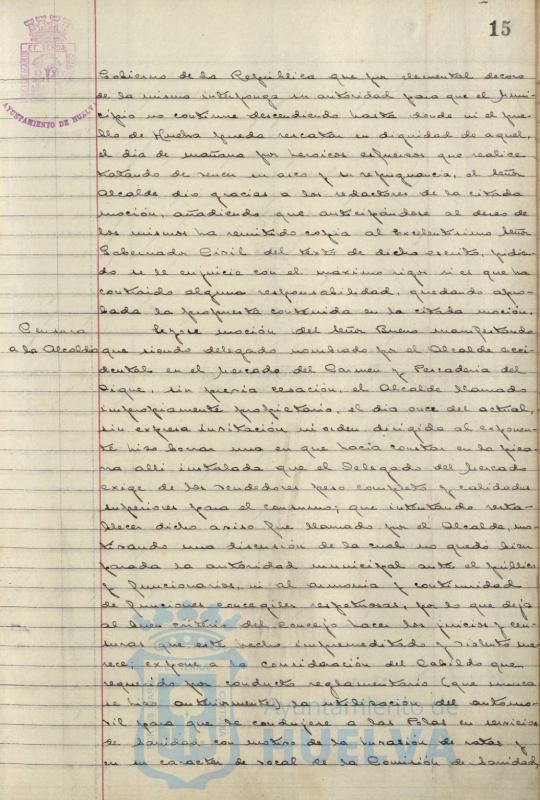 15
AYUNTAMIENTO DE HUELVA
Gobierno de la República que por elemental decoro
de la misma interponga su autoridad para que el Muni-
cipio no continue descendiendo hasta donde ni el pue-
blo de Huelva pueda rescatar su dignidad de aquel,
el día de mañana por heroicos esfuerzos que realice
tratando de vencer su asco y su repugnancia, el Señor
Alcalde dio gracias a los redactores de la citada
moción, añadiendo que anticipándose al deseo de
los mismos ha remitido copia al Excelentísimo Señor
Gobernador Civil del texto de dicho escrito, pidien-
do se le enjuicie con el máximo rigor si es que ha
contraido alguna responsabilidad, quedando apro-
bada la propuesta contenida en la citada moción.
Censura
a la Alcaldía
Leyose moción del Señor Bueno manifestando
que siendo delegado nombrado por el Alcalde acci-
dental en el Mercado del Carmen y Pescadería del
Dique, sin previa cesación, el Alcalde llamado
impropiamente propietario, el día once del actual,
sin expresa invitación ni orden dirigida al exponen-
te hizo borrar una en que hacía constar en la piza-
rra allí instalada que el Delegado del Mercado
exige de los vendedores peso completo y calidades
superiores para el consumo; que intentando resta-
blecer dicho aviso fue llamado por el Alcalde, mo-
tivando una discusión de la cual no quedó bien
parada la autoridad municipal ante el público
y funcionarios, ni al armonia y continuidad
de funciones concegiles respetuosas, por lo que deja
al buen criterio del Concejo hacer los juicios y cen-
suras que este hecho impremeditado y violento me-
rece; expone a la consideración del Cabildo que
requerido por conducto reglamentario (que nunca
se hizo anteriormente) la utilización del automo-
vil para que le condujese a las Palas en servicios
de Sanidad con motivo de la invasión de ratas y
en su caracter de vocal de la Comisión de Sanidad,
Ayuntamiento de
HUELVA